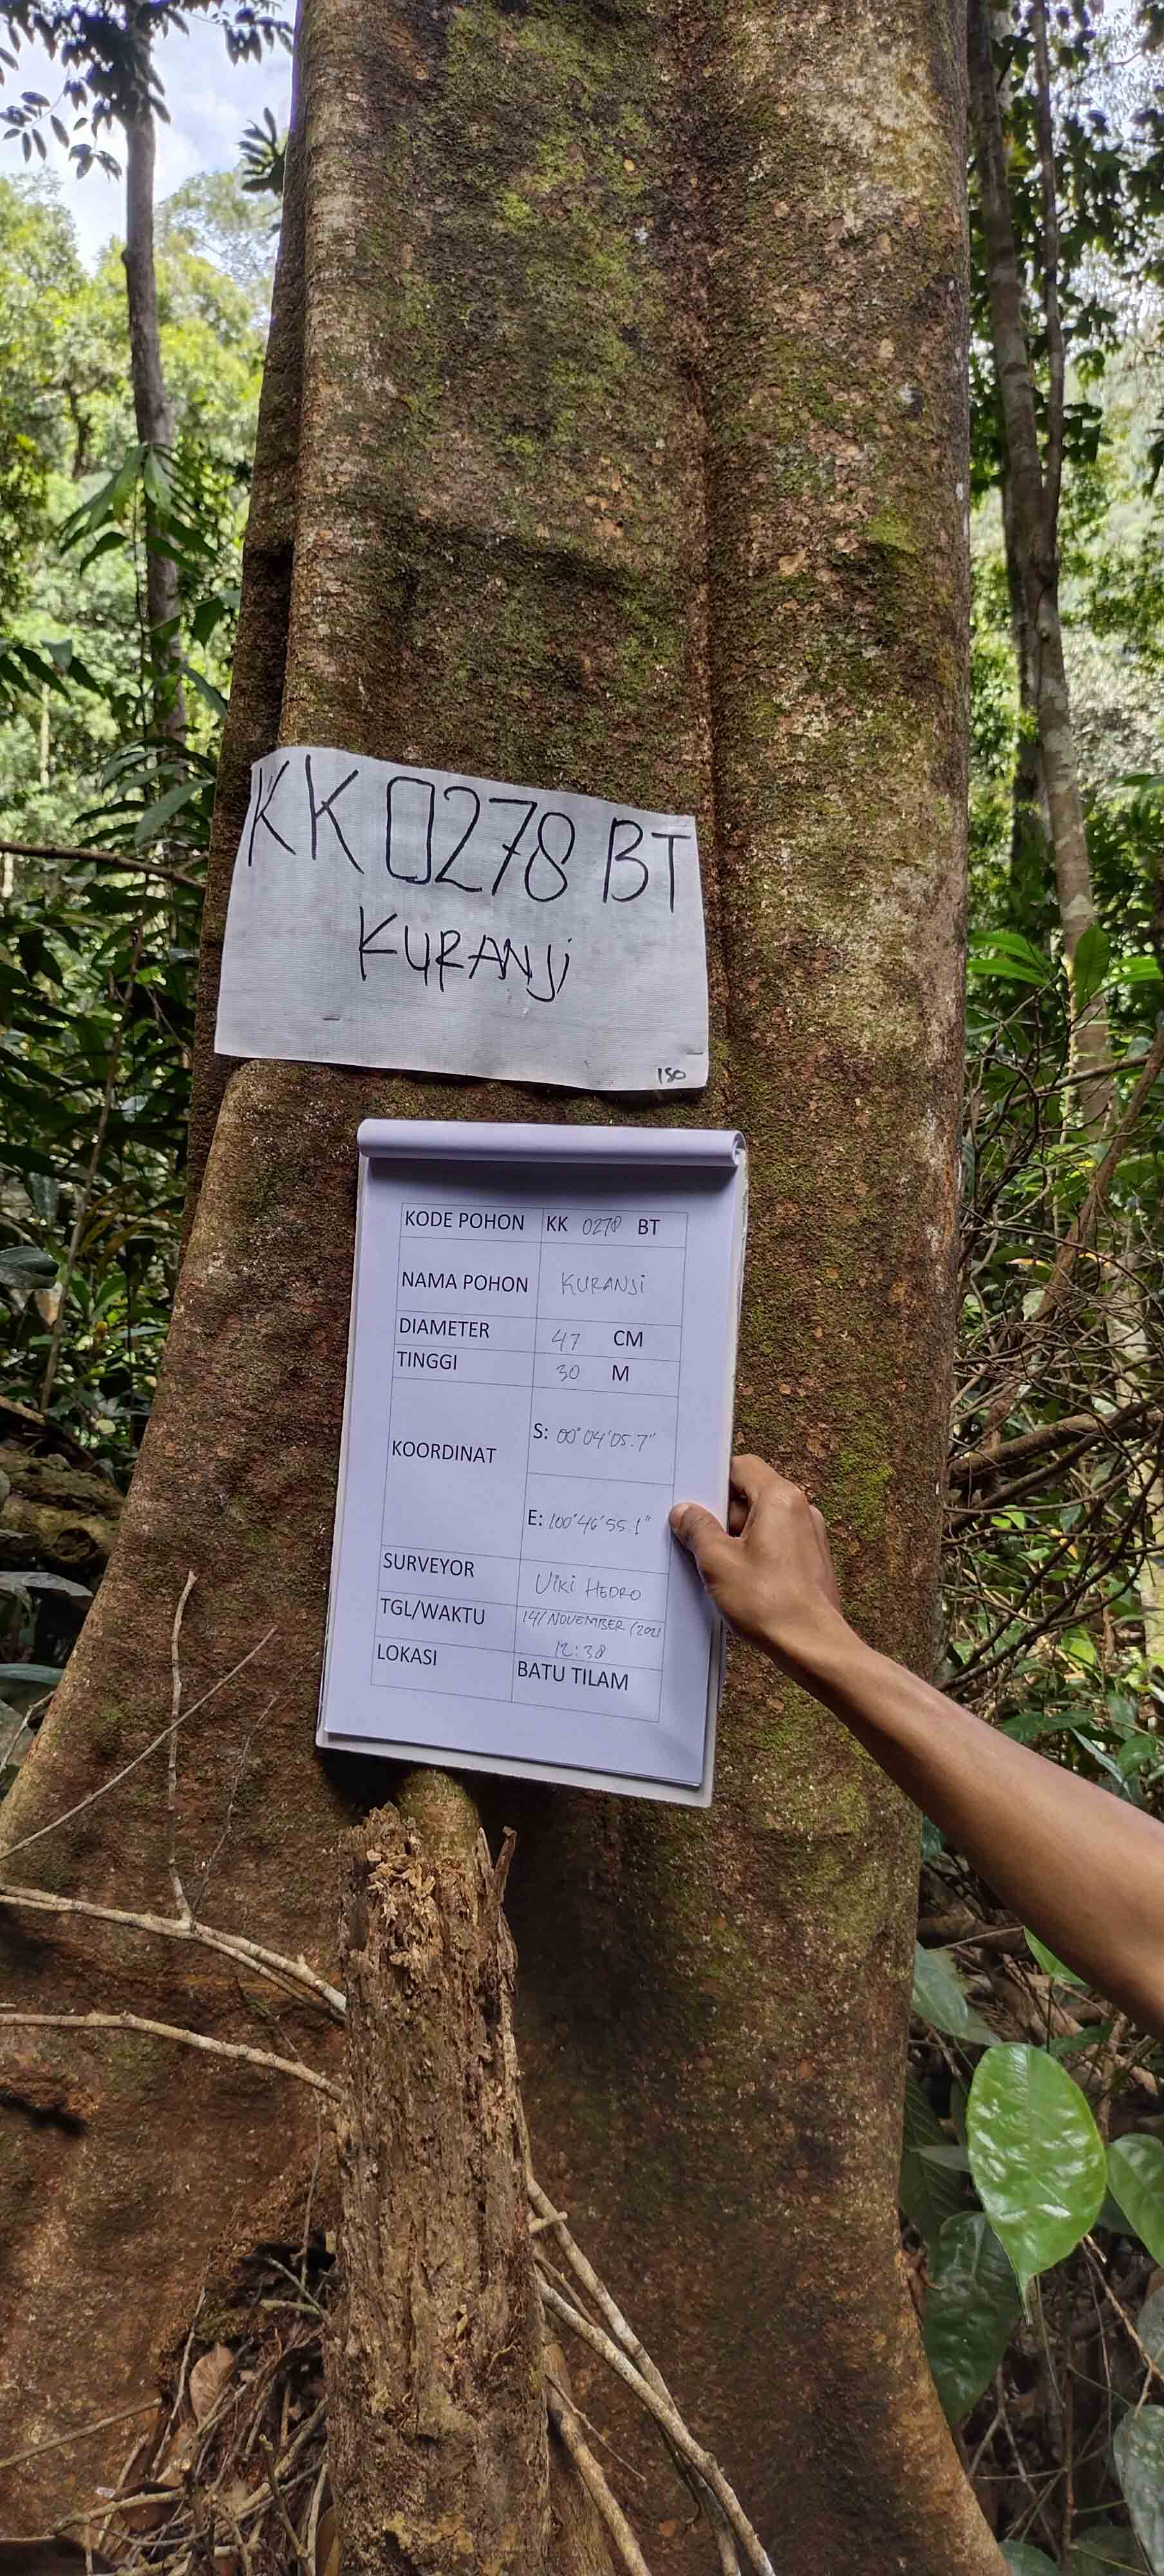 KK 0278 BT
KURANJi
150
KODE POHON KK 0278 BT
NAMA POHON KURANJi
DIAMETER 47 CM
TINGGI 30 M
KOORDINAT
S: 00°04'05.7"
E: 100°46'55.1"
SURVEYOR UiKi HEDRO
TGL/WAKTU 14/NOVEMBER/2021
12:38
LOKASI BATU TILAM